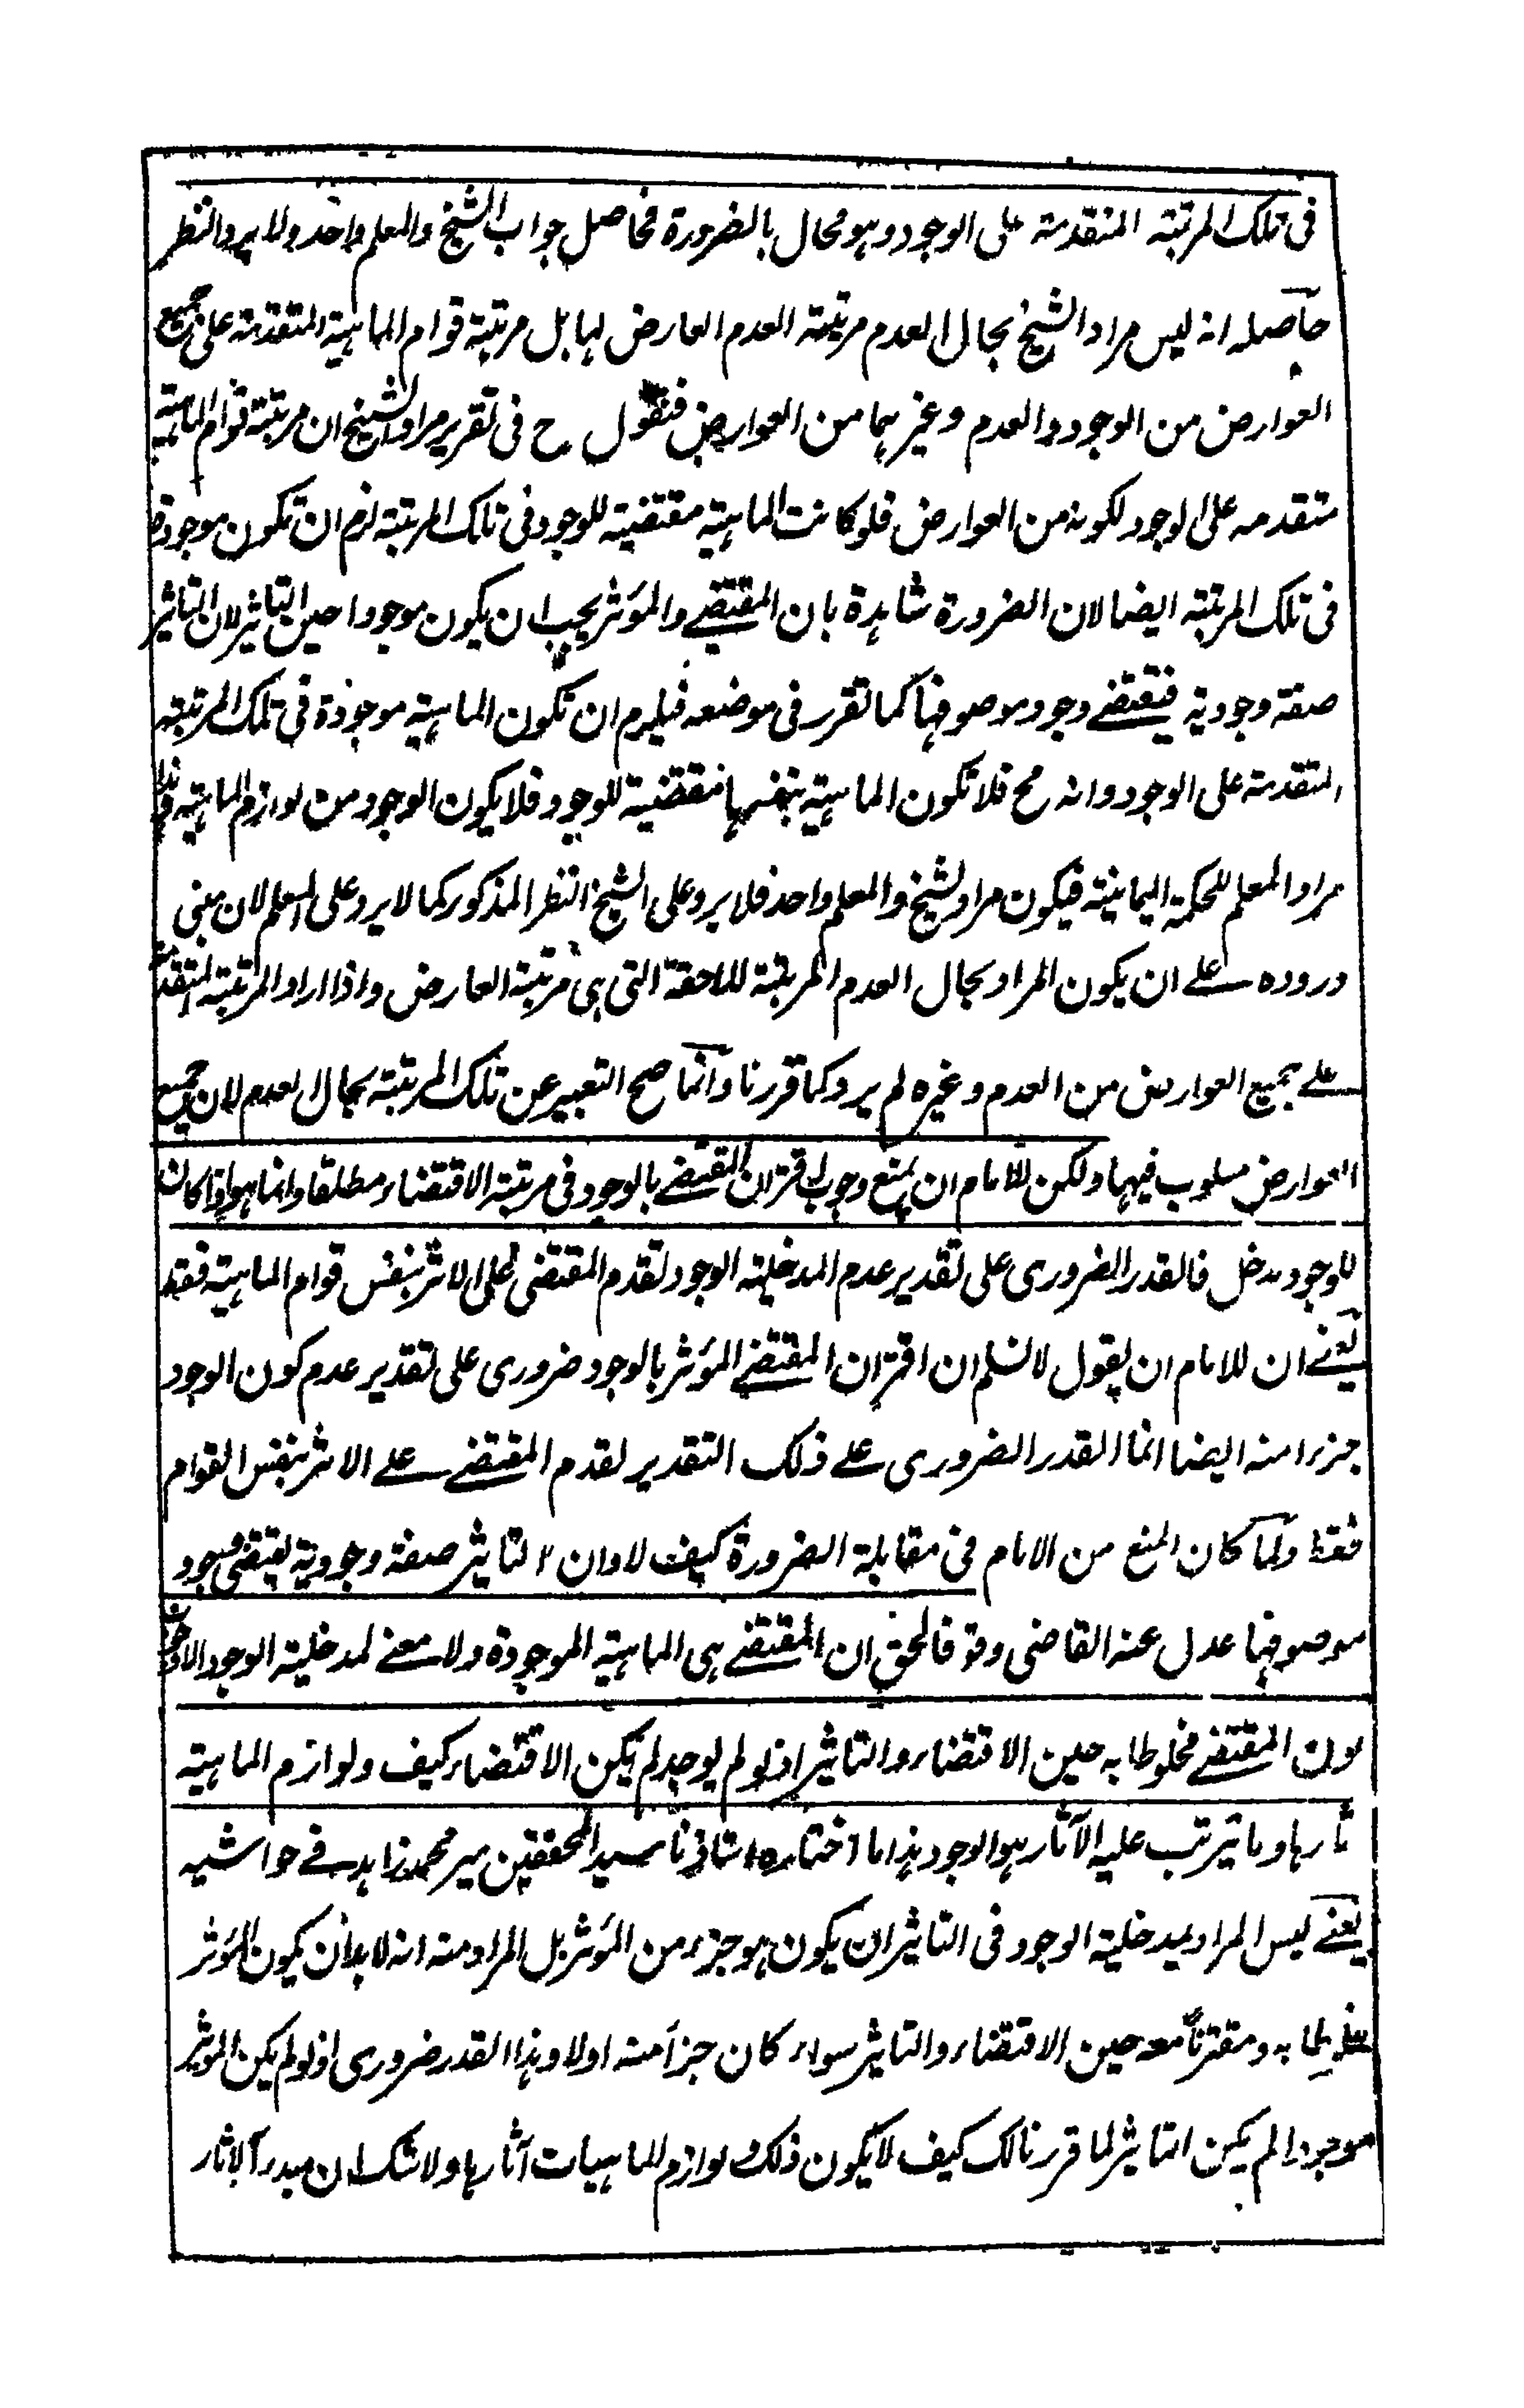 فى تلك المرتبة المتقدمة على الوجود وهو محال بالضرورة فحاصل جواب الشيخ والمعلم واحد ولا يرد النظر
حاصله انه ليس مراد الشيخ بحال العدم مرتبة العدم العارض لها بل مرتبة قوام الماهية المتقدمة على جميع
العوارض من الوجود والعدم وغيرهما من العوارض فنقول ح فى تقرير مراد الشيخ ان مرتبة قوام الماهية
متقدمه على الوجود لكونه من العوارض فلو كانت الماهية مقتضية للوجود فى تلك المرتبة لزم ان تكون موجودة
فى تلك المرتبة ايضا لان الضرورة شاهدة بان المقتضے والمؤثر يجب ان يكون موجودا حين التاثير لان التاثير
صفة وجودية فيقتضے وجود موصوفها كما تقرر فى موضعه فيلزم ان تكون الماهية موجودة فى تلك المرتبة
المتقدمة على الوجود وانه مح فلا تكون الماهية بنفسها مقتضية للوجود فلا يكون الوجود من لوازم الماهية وهذا
مراد المعلم للحكمة اليمانية فيكون مراد الشيخ والمعلم واحد فلا يرد على الشيخ النظر المذكور كما لا يرد على المعلم لان مبنى
وروده علے ان يكون المراد بحال العدم المرتبة اللاحقة التى هى مرتبة العارض واذا اراد المرتبة المتقدمة
علے جميع العوارض من العدم وغيره لم يرد كما قررنا وانما صح التعبير عن تلك المرتبة بحال العدم لان جميع
العوارض مسلوب فيها ولكن للامام ان يمنع وجوب اقتران المقتضے بالوجود فى مرتبة الاقتضاء مطلقا وانما هو اذا كان
للوجود مدخل فالقدر الضرورى على تقدير عدم المدخلية الوجود تقدم المقتضى على الاثر بنفس قوام الماهية فقط
يعنے ان للامام ان يقول لا نسلم ان اقتران المقتضے المؤثر بالوجود ضرورى على تقدير عدم كون الوجود
جزءا منه ايضا انما القدر الضرورى علے ذلك التقدير تقدم المقتضے علے الاثر بنفس القوام
فقط ولما كان المنع من الامام فى مقابلة الضرورة كيف لا وان التاثير صفة وجودية يقتضى وجود
موصوفها عدل عنه القاضى وقو فالحق ان المقتضے هى الماهية الموجودة ولا معنے لمدخلية الوجود الا
كون المقتضے مخلوطا به حين الاقتضاء والتاثير اذ لو لم يوجد لم يكن الاقتضاء كيف ولوازم الماهية
اثارها وما يترتب عليه الآثار هو الوجود هذا ما اختاره استاذنا سيد المحققين مير محمد زاهد فے حواشيه
يعنے ليس المراد بمدخلية الوجود فى التاثير ان يكون هو جزء من المؤثر بل المراد منه انه لا بد ان يكون المؤثر
مخلوطا به ومقترنا معه حين الاقتضاء والتاثير سواء كان جزأ منه اولا وهذا القدر ضرورى اذ لو لم يكن الموثر
موجودا لم يكن التاثير لما قررنا لك كيف لا يكون ذلك ولوازم الماهيات آثارها ولا شك ان مبدء الآثار